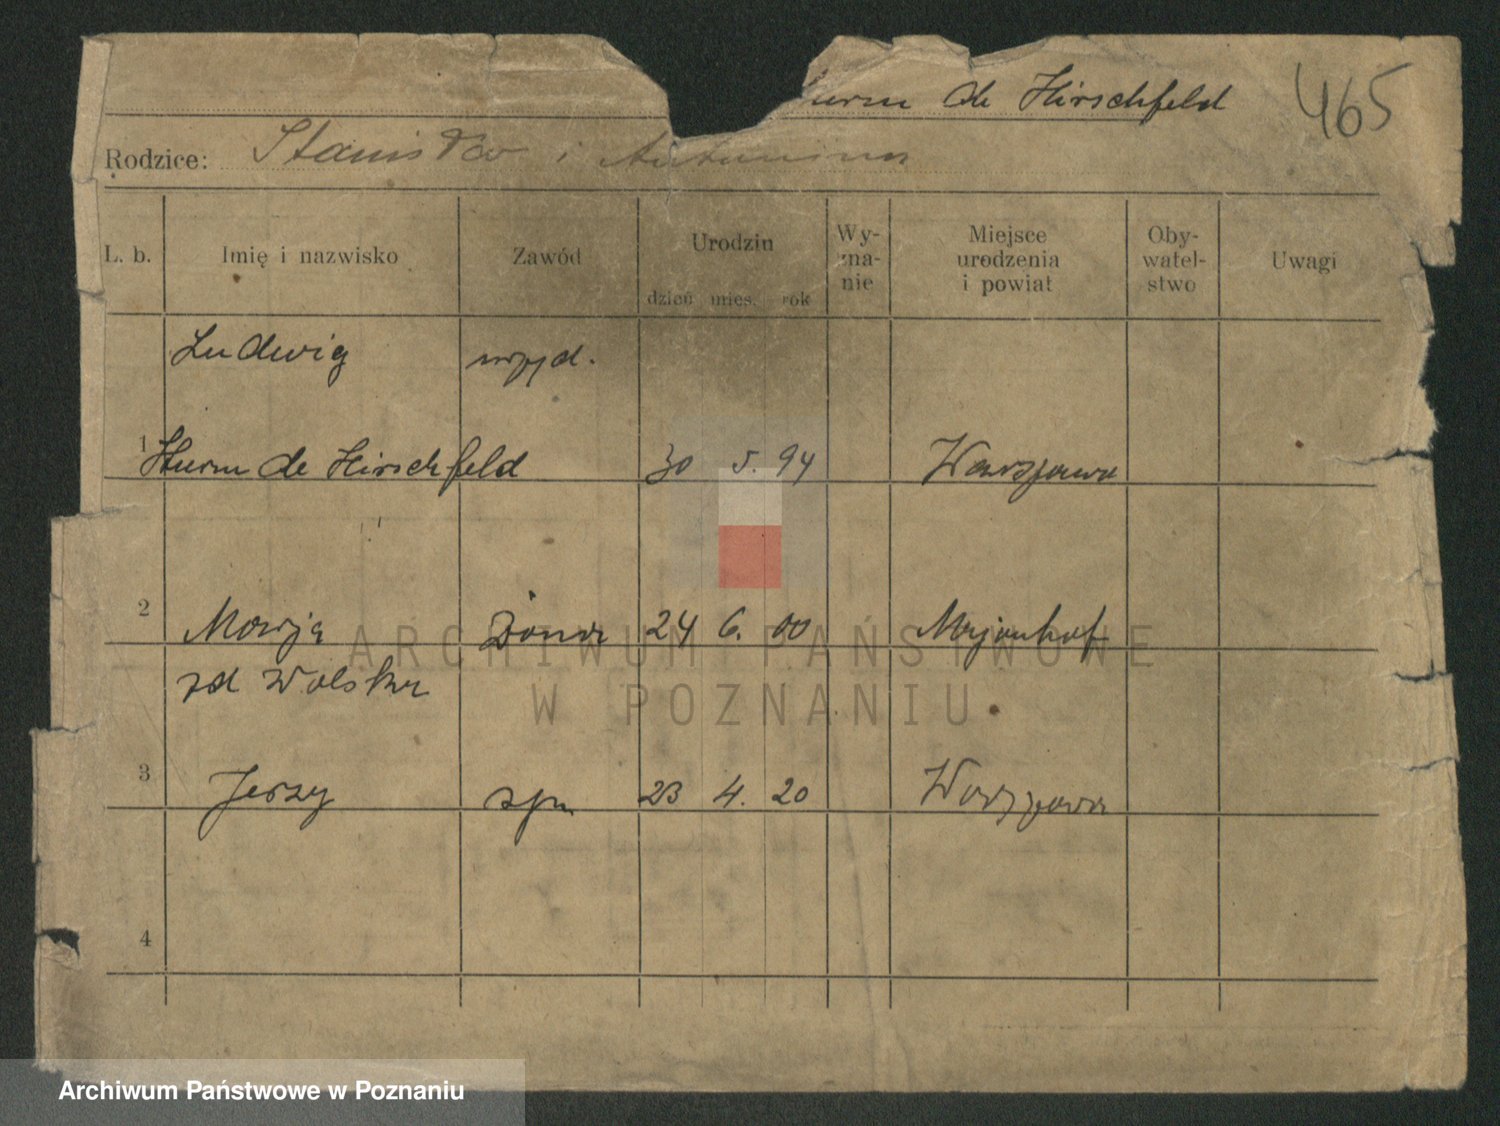 de Hirschfeld 465
Rodzice: Stanisław i Antonina
L. b. Imię i nazwisko Zawód Urodzin dzień mies. rok Wy-zna-nie Miejsce urodzenia i powiat Oby-watel-stwo Uwagi
Ludwig
1 Sturm de Hirschfeld 30 5. 94 Warszawa
2 Marja żona 24 6. 00
zd Wolska
3 Jerzy syn 23 4. 20 Warszawa
4
ARCHIWUM PAŃSTWOWE
W POZNANIU
Archiwum Państwowe w Poznaniu